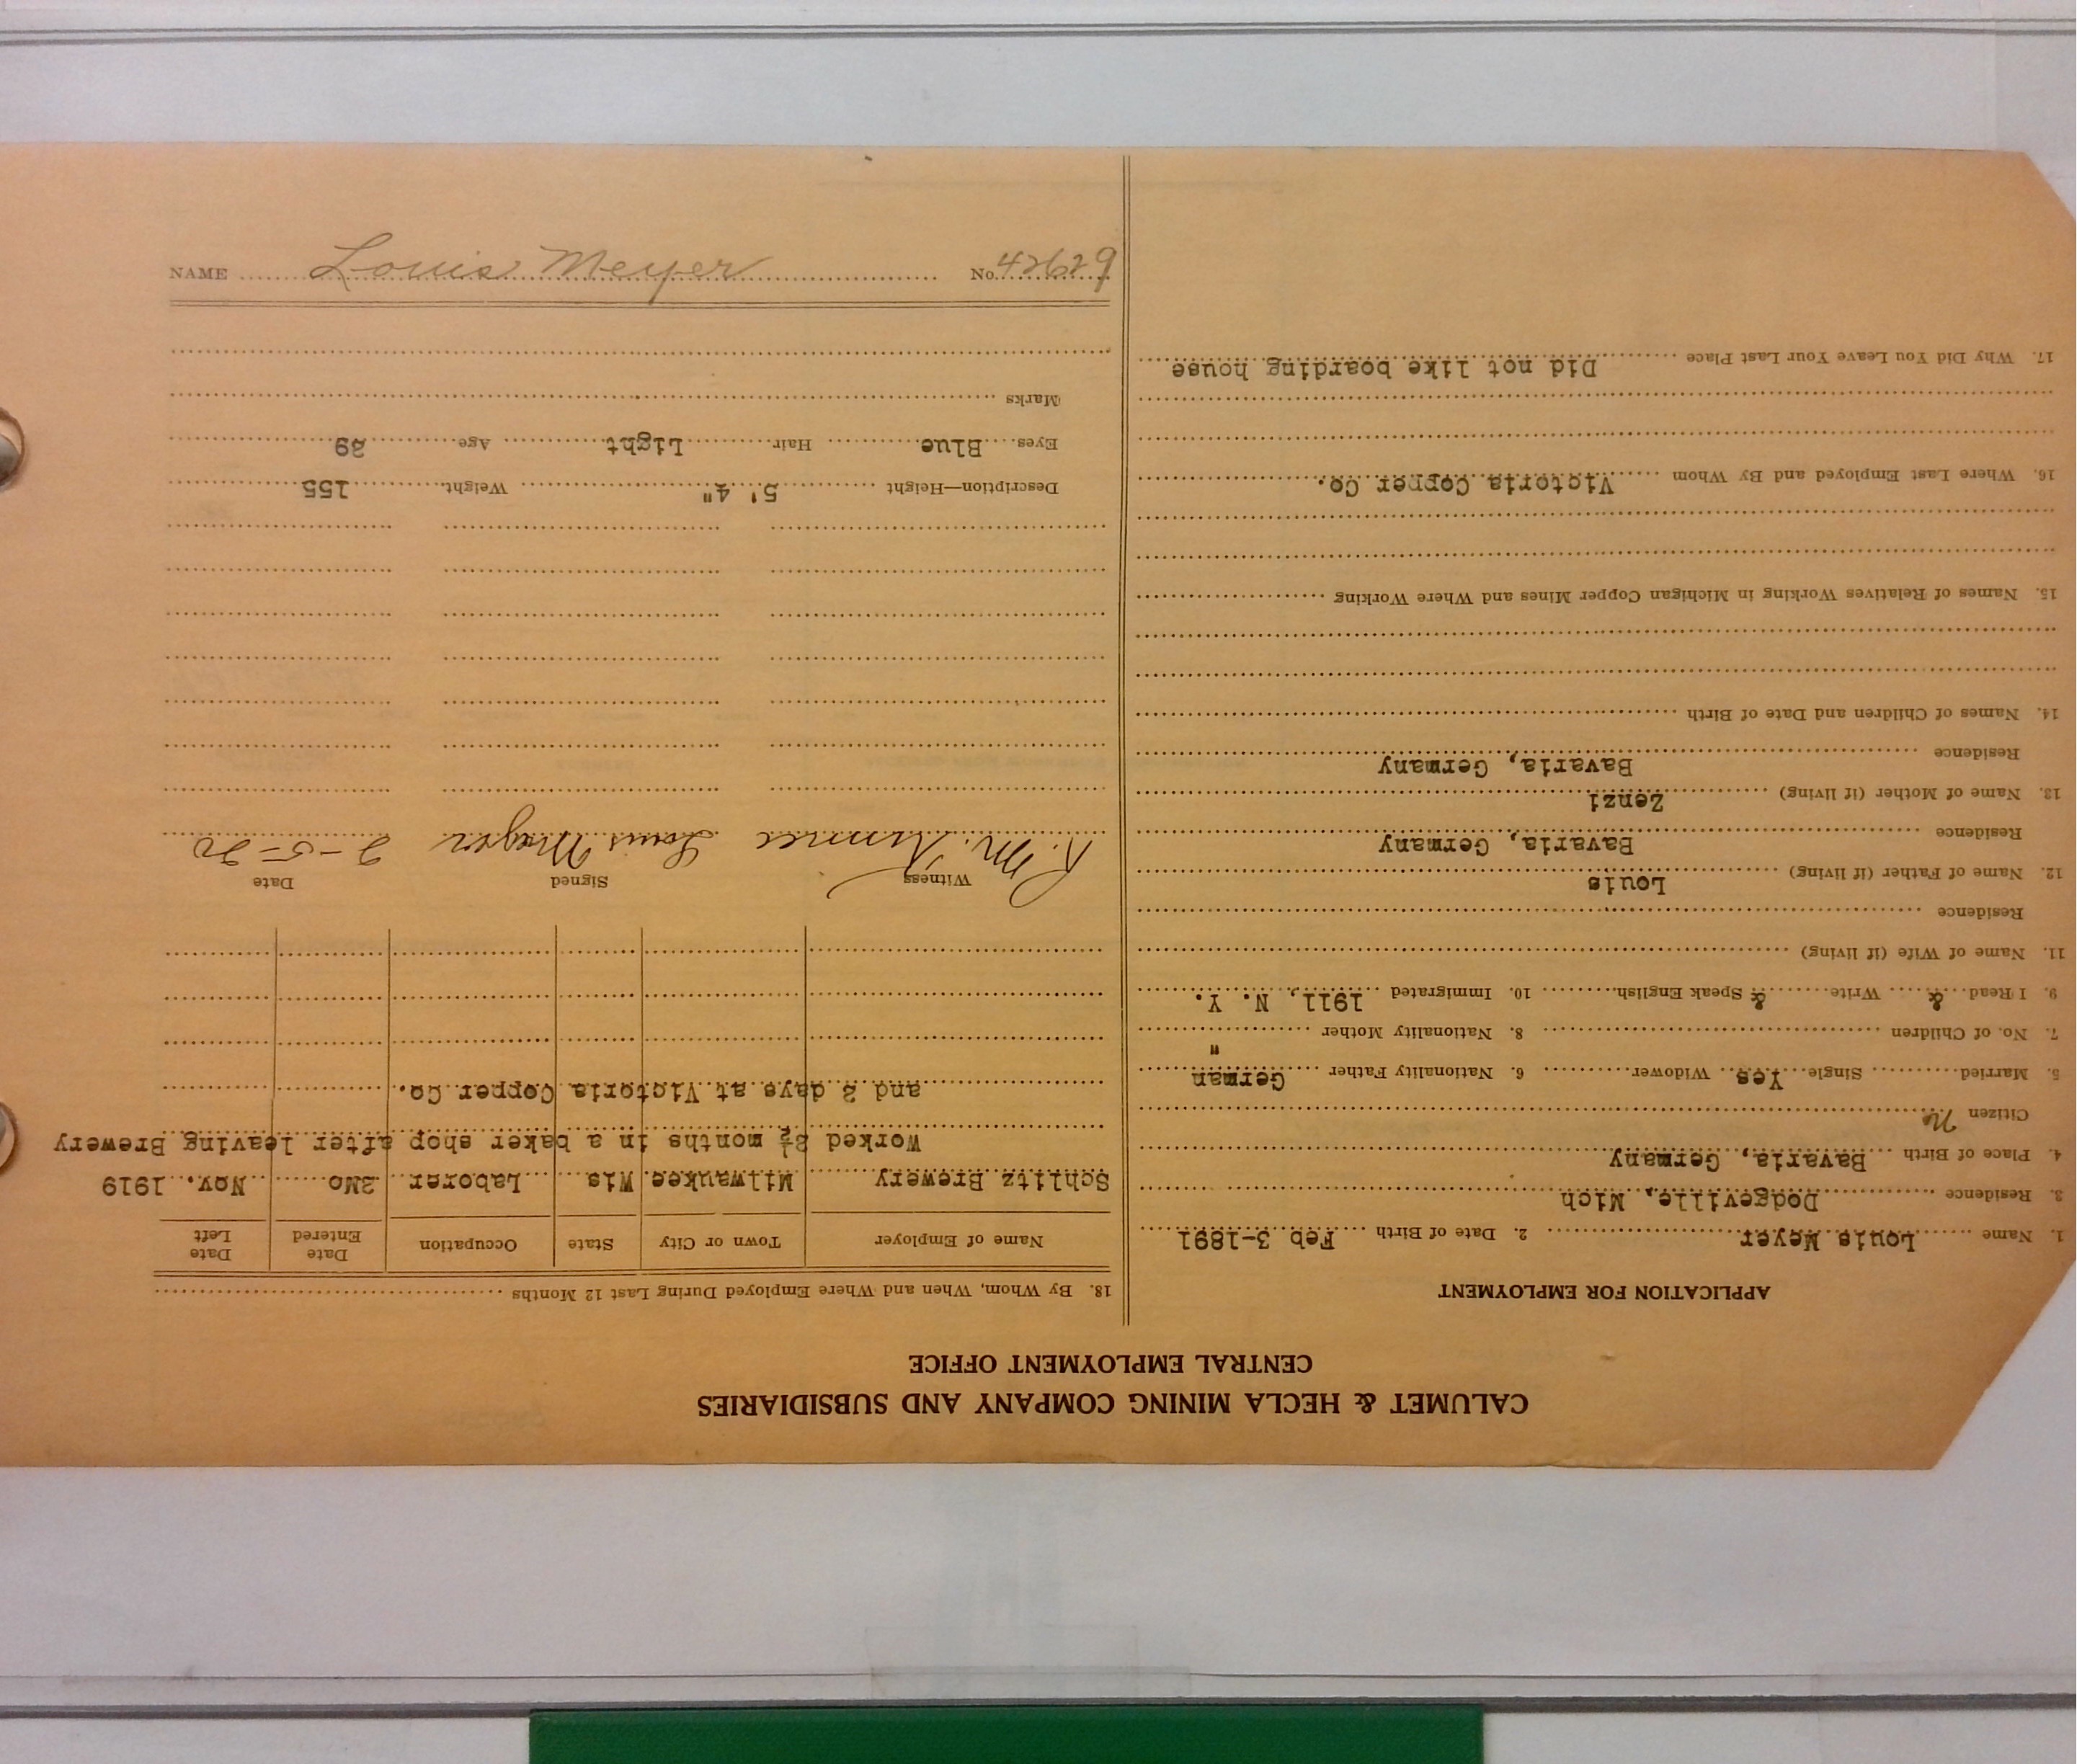 CALUMET & HECLA MINING COMPANY AND SUBSIDIARIES
CENTRAL EMPLOYMENT OFFICE
APPLICATION FOR EMPLOYMENT
1. Name Louis Meyer 2. Date of Birth Feb 3-1891
3. Residence Dodgeville, Mich
4. Place of Birth Bavaria, Germany
Citizen No
5. Married Single Yes Widower 6. Nationality Father German
7. No. of Children 8. Nationality Mother "
9. I Read & Write & Speak English 10. Immigrated 1911, N. Y.
11. Name of Wife (if living)
Residence
12. Name of Father (if living) Louis
Residence Bavaria, Germany
13. Name of Mother (if living) Zenzi
Residence Bavaria, Germany
14. Names of Children and Date of Birth
15. Names of Relatives Working in Michigan Copper Mines and Where Working
16. Where Last Employed and By Whom Victoria Copper Co.
17. Why Did You Leave Your Last Place Did not like boarding house
18. By Whom, When and Where Employed During Last 12 Months
Name of Employer Town or City State Occupation Date Entered Date Left
Schlitz Brewery Milwaukee Wis Laborer 2Mo Nov. 1919
Worked 2½ months in a baker shop after leaving Brewery
and 2 days at Victoria Copper Co.
Witness Signed Date
R. M. Louis Meyer 2-5-20
Description—Height 5' 4" Weight 155
Eyes Blue Hair Light Age 29
Marks
NAME Louis Meyer No. 42629